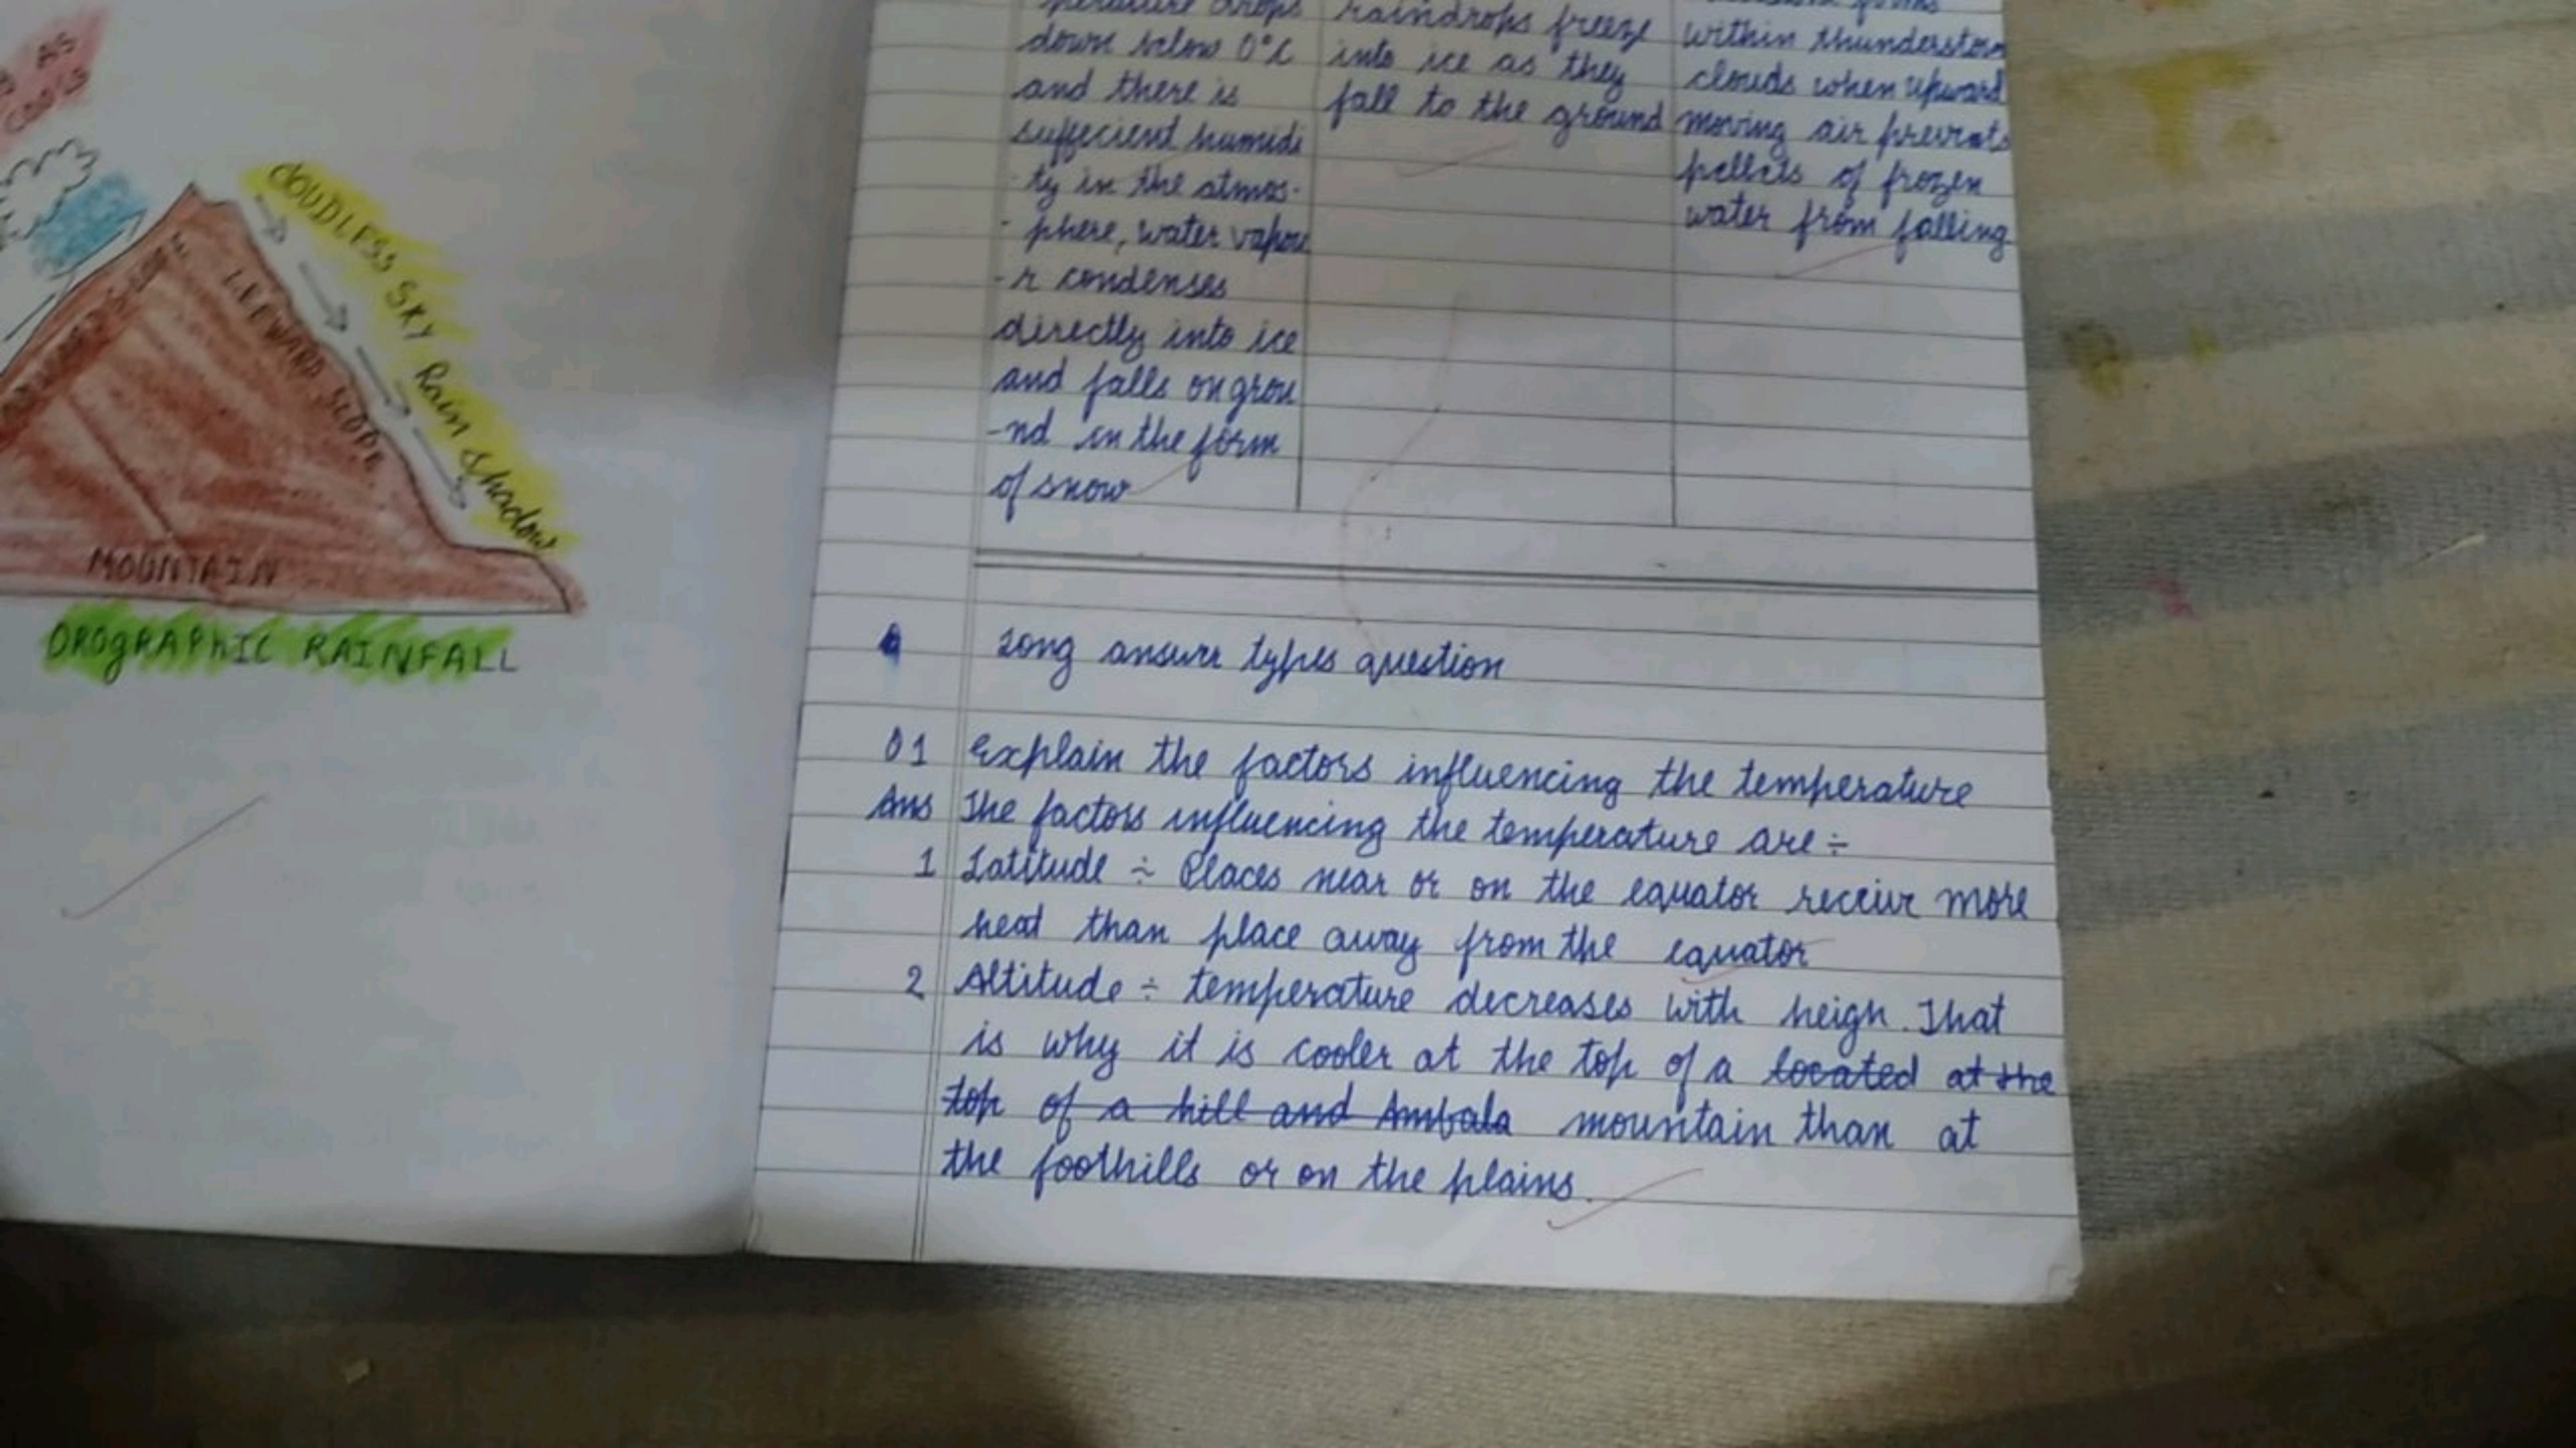 AS
COOLS
CLOUDLESS SKY Rain Shadow
LEEWARD SLOPE
MOUNTAIN
OROGRAPHIC RAINFALL
down below 0°C
and there is
suffecient humidi
ty in the atmos-
- phere, water vapou
-r condenses
directly into ice
and falls on grou
-nd in the form
of snow
raindrops freeze
into ice as they
fall to the ground
within thunderstorm
clouds when upward
moving air prevents
pellets of frozen
water from falling
Long answer types question
Q1 Explain the factors influencing the temperature
Ans The factors influencing the temperature are ÷
1 Latitude ÷ Places near or on the equator receive more
heat than place away from the equator
2 Altitude ÷ temperature decreases with heigh. That
is why it is cooler at the top of a located at the
top of a hill and Ambala mountain than at
the foothills or on the plains.